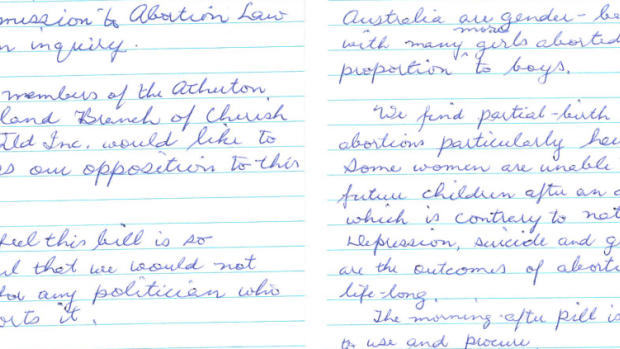 mission to Abortion Law
n inquiry.
members of the Atherton
land Branch of Cherish
ld Inc. would like to
s our opposition to this
feel this bill is so
l that we would not
for any politician who
orts it.
Australia are gender-be
with many more girls aborted
proportion to boys.
We find partial-birth
abortions particularly
Some women are unable
future children after an a
which is contrary to nat
Depression, suicide and g
are the outcomes of aborti
life-long.
The morning-after pill is
to use and procure